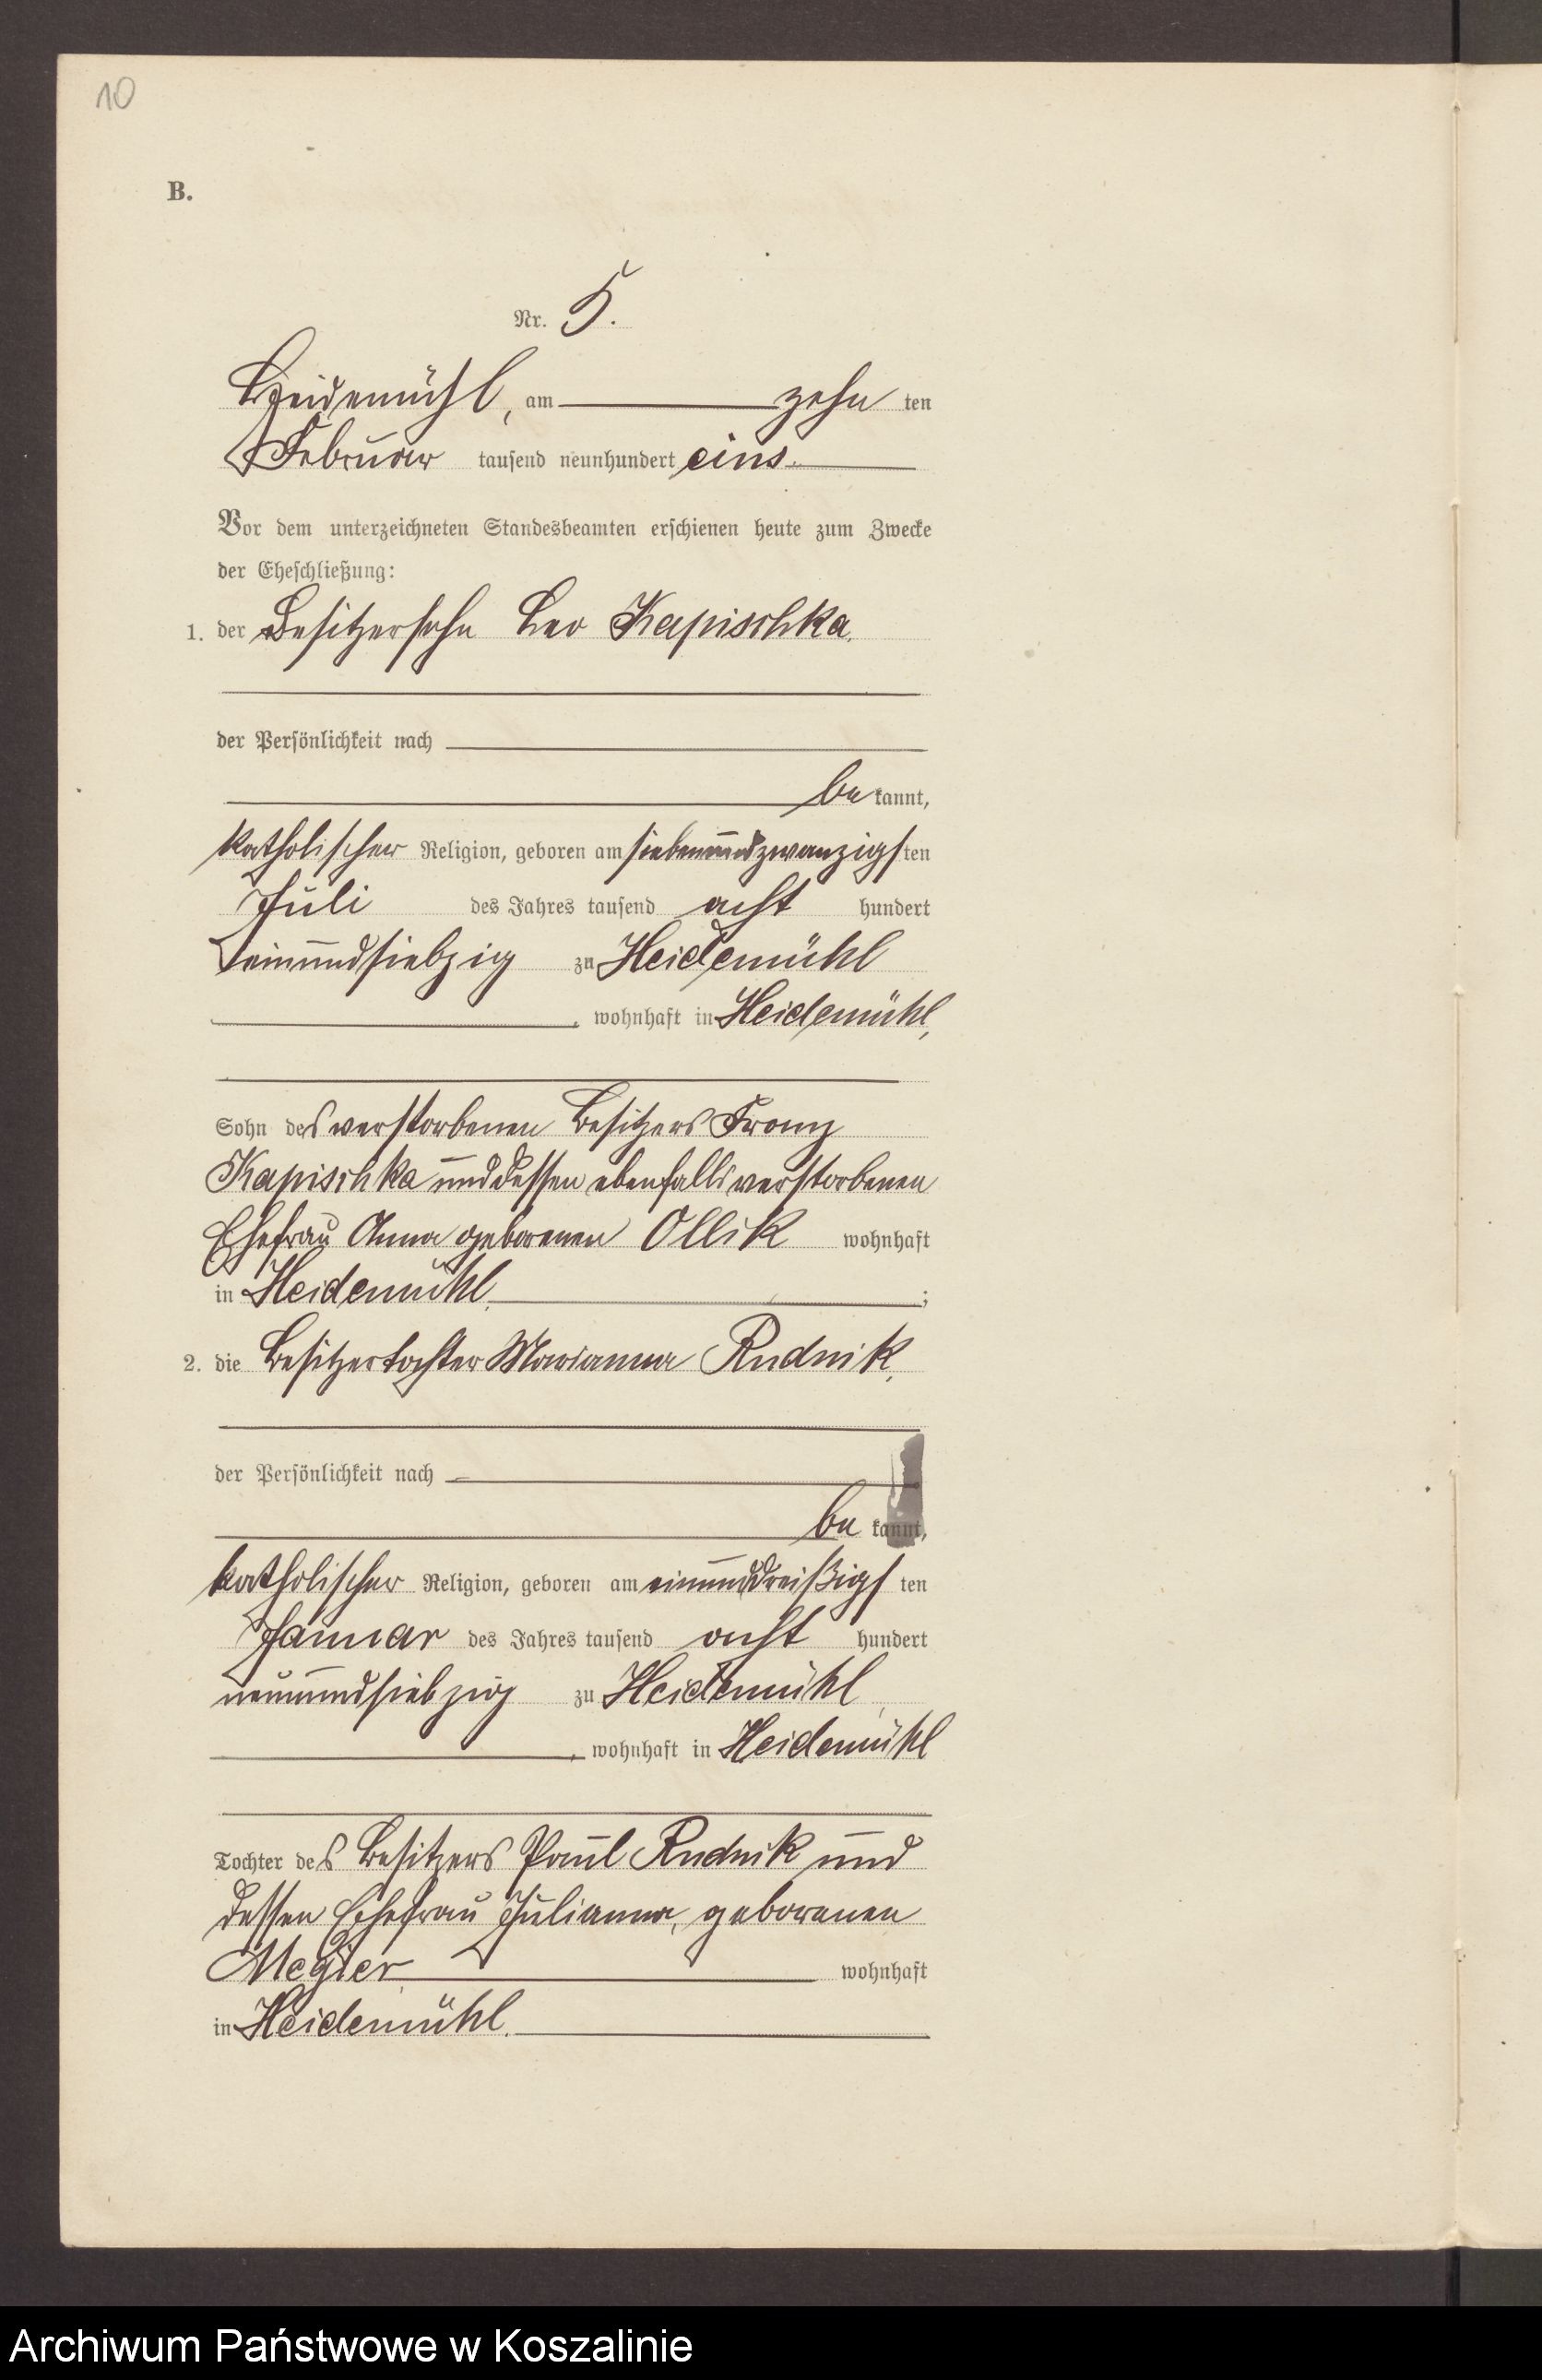 10
B.
Nr. 5.
Heidemühl, am zehn ten
Februar tausend neunhundert eins.
Vor dem unterzeichneten Standesbeamten erschienen heute zum Zwecke
der Eheschließung:
1. der Besitzersohn Leo Kapischka,
der Persönlichkeit nach
be kannt,
katholischer Religion, geboren am siebenundzwanzigs ten
Juli des Jahres tausend acht hundert
einundsiebzig zu Heidemühl
, wohnhaft in Heidemühl,
Sohn des verstorbenen Besitzers Franz
Kapischka und dessen ebenfalls verstorbenen
Ehefrau Anna geborenen Ollik wohnhaft
in Heidemühl. ;
2. die Besitzertochter Marianna Rudnik,
der Persönlichkeit nach
be kannt,
katholischer Religion, geboren am einunddreißigs ten
Januar des Jahres tausend acht hundert
neunundsiebzig zu Heidemühl,
, wohnhaft in Heidemühl
Tochter des Besitzers Paul Rudnik und
dessen Ehefrau Julianna, geborenen
Megier wohnhaft
in Heidemühl.
Archiwum Państwowe w Koszalinie